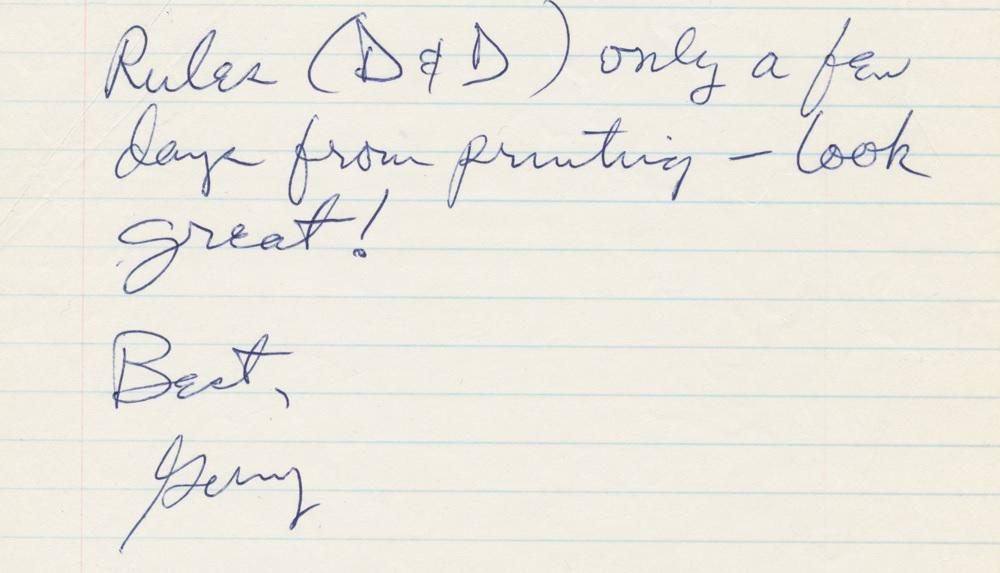 Rules (D & D) only a few
days from printing — look
great!
Best,
Gerry